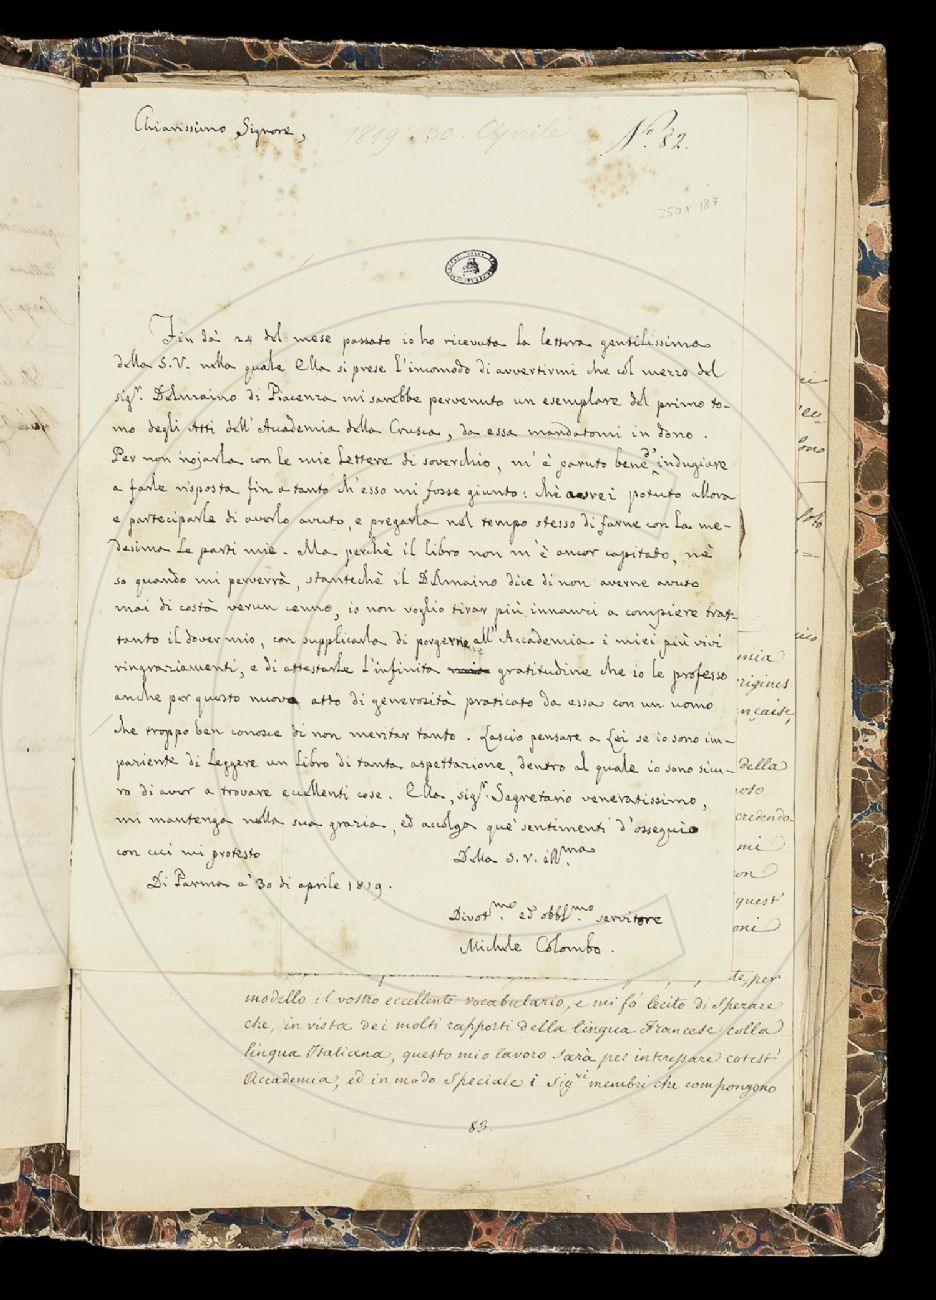 Chiarissimo Signore,
1819. 30. Aprile
N.º 82.
250 x 187
Fin da' 24 del mese passato io ho ricevuta la lettera gentilissima
della S.V. nella quale Ella si prese l'incomodo di avvertirmi che col mezzo del
sig.r Delmaino di Piacenza mi sarebbe pervenuto un esemplare del primo to-
mo degli Atti dell'Accademia della Crusca, da essa mandatomi in dono.
Per non nojarla con le mie Lettere di soverchio, m'è paruto bene d'indugiare
a farle risposta fin a tanto ch'esso mi fosse giunto: chè avrei potuto allora
e parteciparle di averlo avuto, e pregarla nel tempo stesso di farne con la me-
desima le parti mie. Ma perchè il libro non m'è ancor capitato, nè
so quando mi perverrà, stantechè il Delmaino dice di non averne avuto
mai di costà verun cenno, io non voglio tirar più innanzi a compiere frat-
tanto il dover mio, con supplicarla di porgerne all'Accademia i miei più vivi
ringraziamenti, e di attestarle l'infinita mia gratitudine che io le professo
anche per questo nuovo atto di generosità praticato da essa con un uomo
che troppo ben conosce di non meritar tanto. Lascio pensare a Lei se io sono im-
paziente di leggere un libro di tanta aspettazione, dentro al quale io sono sicu-
ro di aver a trovare eccellenti cose. Ella, sig.r Segretario veneratissimo,
mi mantenga nella sua grazia, ed accolga que' sentimenti d'ossequio
con cui mi protesto
Della S.V. ill.ma
Di Parma a' 30 di aprile 1819.
Divot.mo ed obbl.mo servitore
Michele Colombo.
mia
rigines
nçaise,
della
credendo-
mi
con
quest'
oni
te, per
modello il vostro eccellente vocabulario, e mi fò lecito di Sperare
che, in vista dei molti rapporti della lingua Francese colla
lingua Italiana, questo mio lavoro sarà per interessare cotest'
Accademia, ed in modo Speciale i Sig.ri membri che compongono
83.